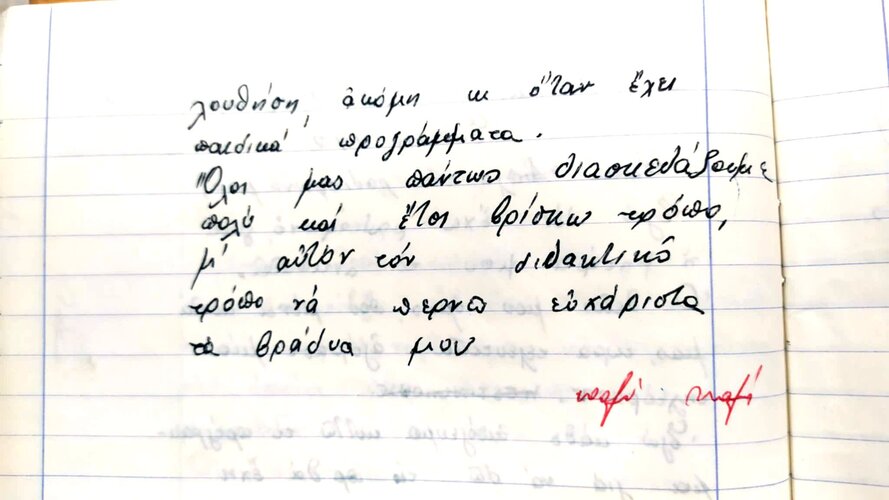 λουθήση, ἀκόμη κι ὅταν ἔχει
παιδικά προγράμματα.
Ὅλοι μας πάντως διασκεδάζουμε
πολύ καί ἔτσι βρίσκω τρόπο,
μ' αὐτόν τόν διδακτικό
τρόπο νά περνῶ εὐχάριστα
τά βράδυα μου